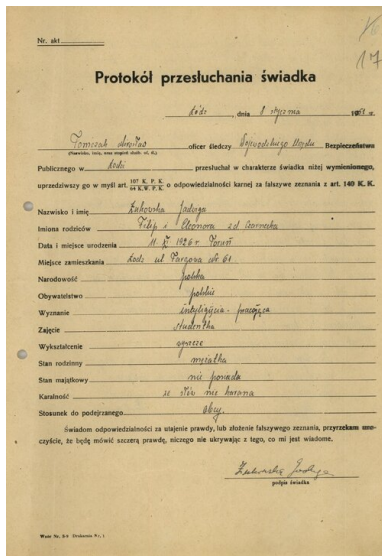 17
Nr. akt
Protokół przesłuchania świadka
Łódź, dnia 8 stycznia 1951 r.
Tomczak oficer śledczy Wojewódzkiego Urzędu Bezpieczeństwa
(Nazwisko, imię, oraz stopień służb. of. śl.)
Publicznego w Łodzi przesłuchał w charakterze świadka niżej wymienionego,
uprzedziwszy go w myśl art. 107 K. P. K. / 64 K.W.P.K. o odpowiedzialności karnej za fałszywe zeznania z art. 140 K. K.
Nazwisko i imię Żukowska Jadwiga
Imiona rodziców Filip i Eleonora zd Czarnecka
Data i miejsce urodzenia 11. XI 1926 r Toruń
Miejsce zamieszkania Łódź ul. Nr 61
Narodowość polska
Obywatelstwo polskie
Wyznanie inteligencja - pracująca
Zajęcie studentka
Wykształcenie wyższe
Stan rodzinny mężatka
Stan majątkowy nie posiada
Karalność ze słów nie karana
Stosunek do podejrzanego obcy.
Świadom odpowiedzialności za utajenie prawdy, lub złożenie fałszywego zeznania, przyrzekam uroczyście, że będę mówić szczerą prawdę, niczego nie ukrywając z tego, co mi jest wiadome.
Żukowska Jadwiga
podpis świadka
Wzór Nr. 5-9 Drukarnia Nr. 1